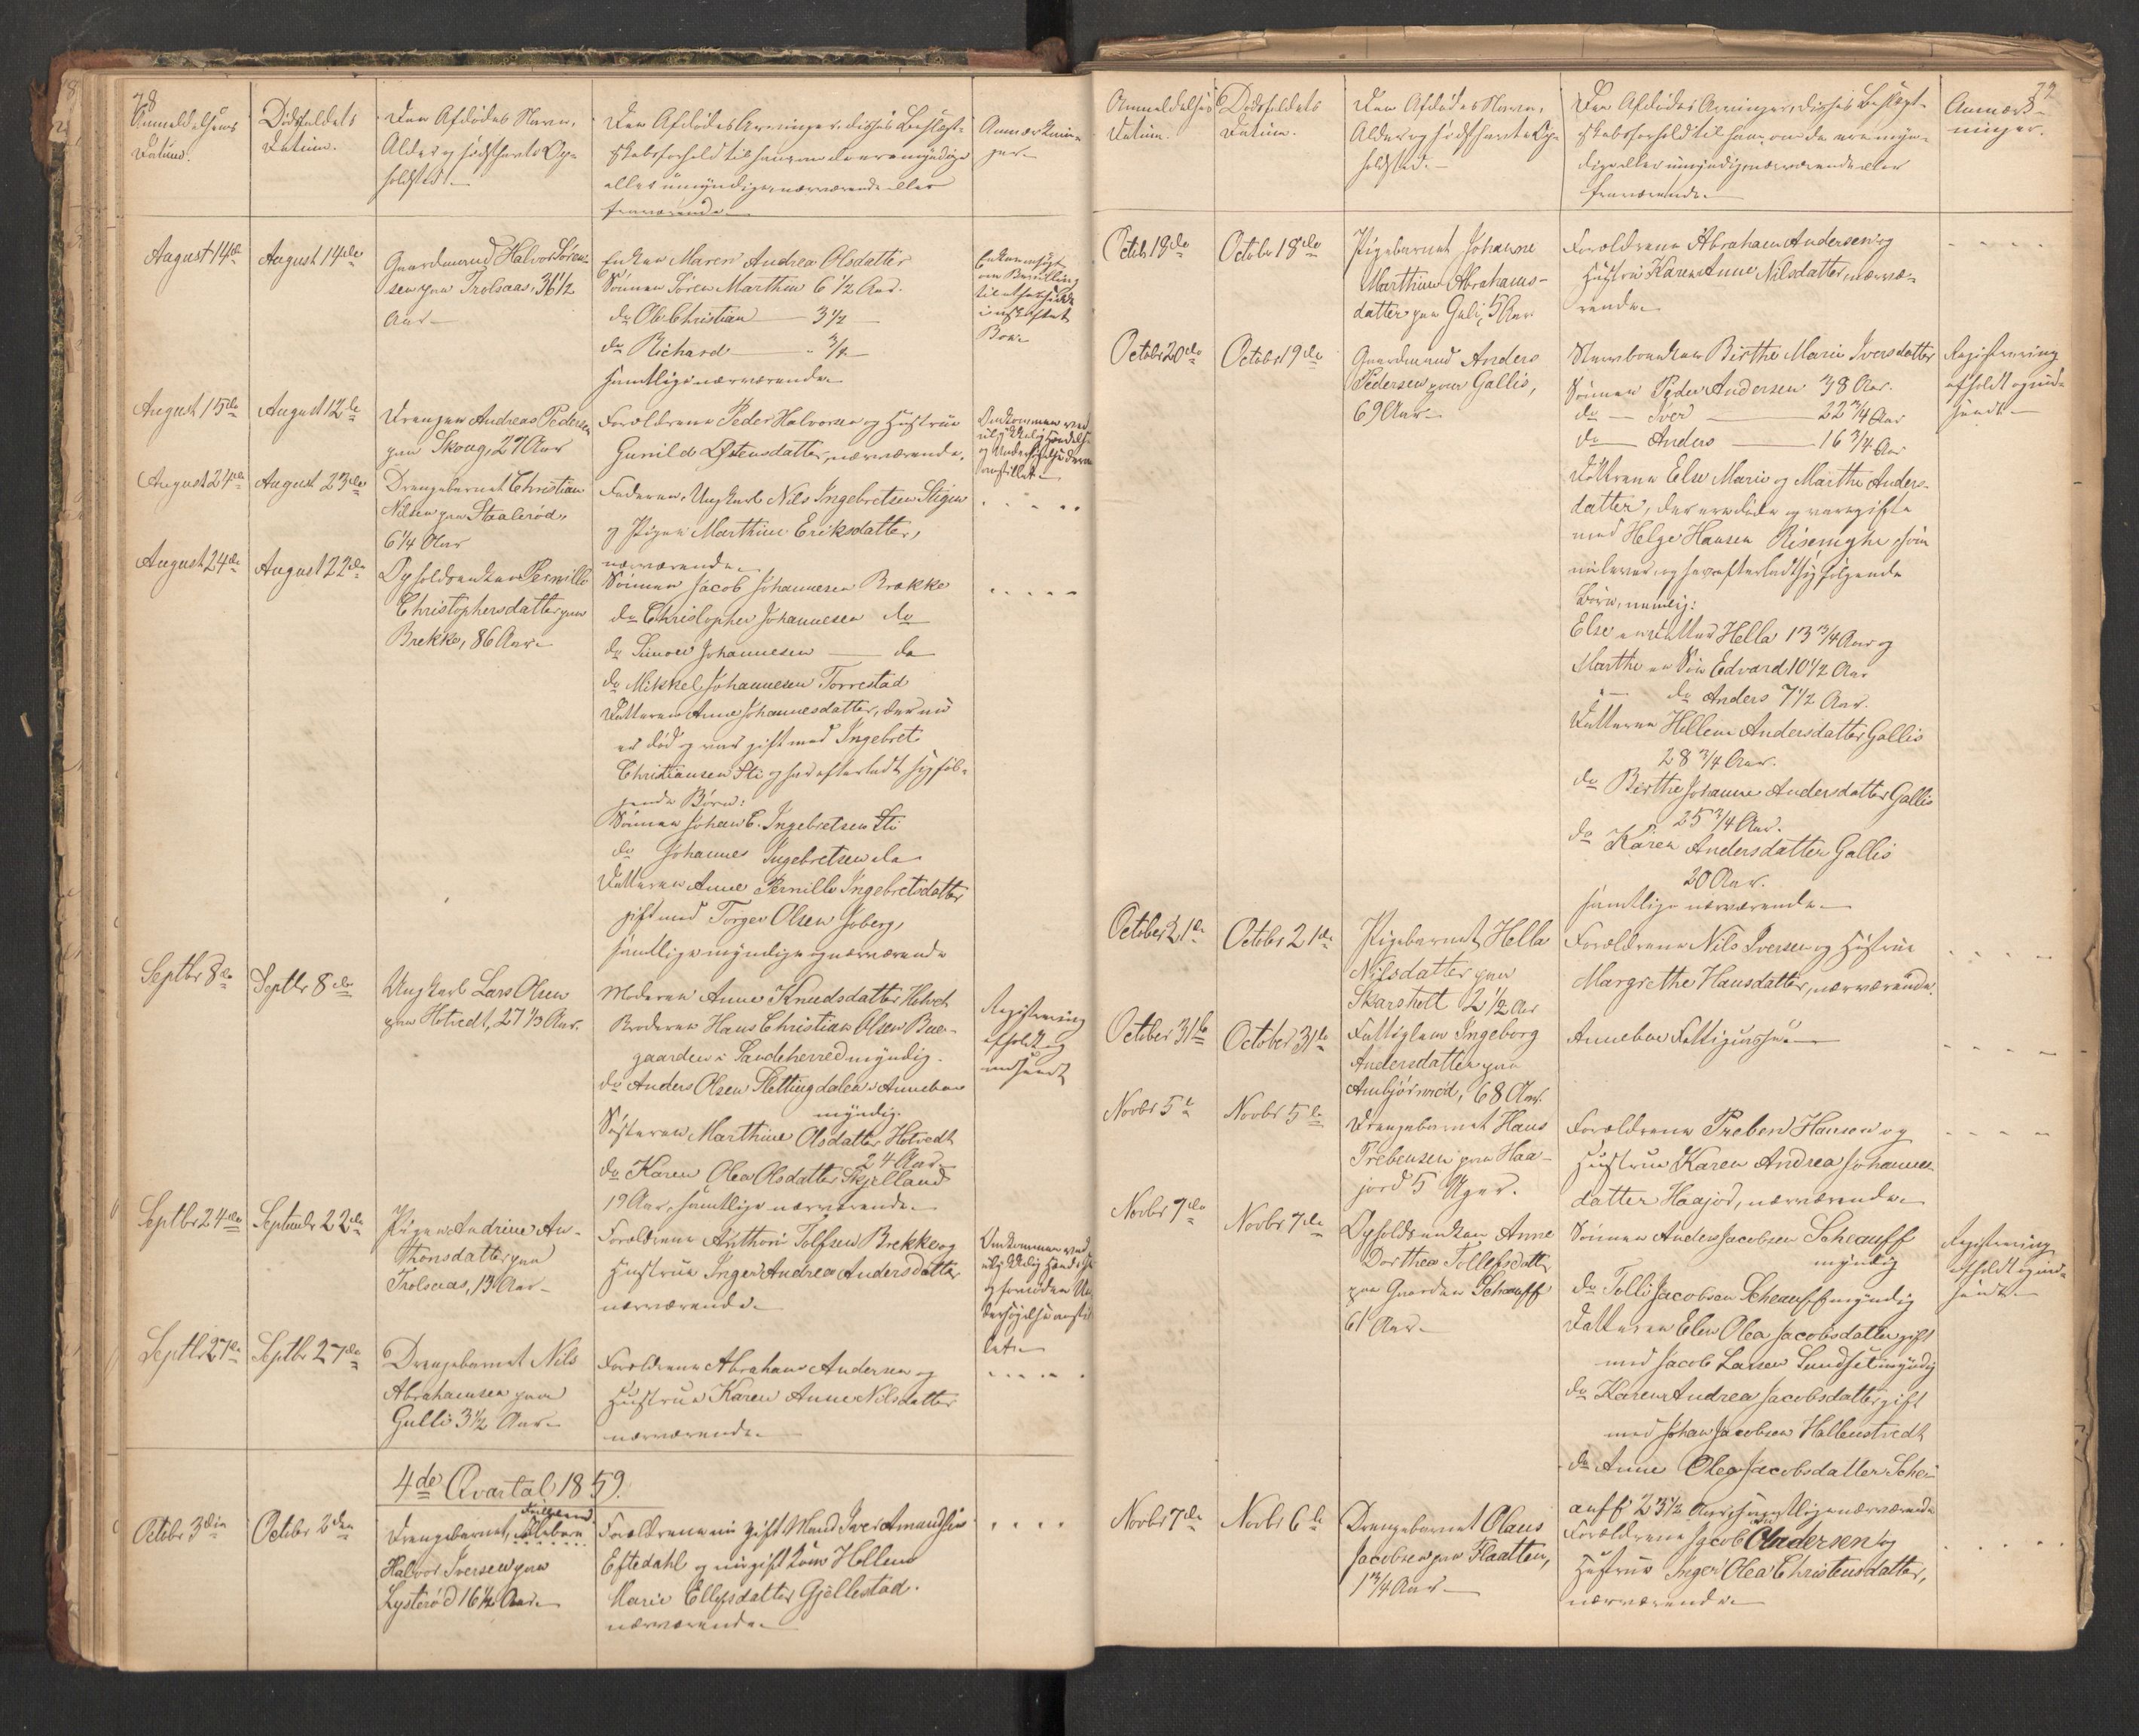 78
Anmeldelsens
Datum.
Dødsfaldets
Datum.
Den Afdødes Navn,
Alder og sidst havte Op-
holdsted.
Den Afdødes Arvinger, disses Beslægt-
skabsforhold til ham, om de ere myndige
eller umyndige, nærværende eller
fraværende
Anmærknin-
ger.
August 14de
August 14de
Gaardmand Halvor Søren-
sen paa Trolsaas, 36 1/2
Aar
Enken Maren Andrea Olsdatter
Sønnen Søren Marthin 6 1/2 Aar.
do Ole Christian 3 1/2
do Richard 3/4
samtlige nærværende
Enken
om Bevilling
til at hensidde
i uskiftet
Bo.
August 15de
August 12te
Drengen Andreas Pedersen
paa Skoug, 29 Aar
Forældrene Peder Halvorsen og Hustrue
Gunild Østensdatter, nærværende.
Omkommen ved
ulykkelig Hændelse
og Undersøgelse derom
anstillet.
August 24de
August 23de
Drengebarnet Christian
Nilsen paa Staalerød,
6 1/4 Aar
Faderen, Ungkarl Nils Ingebretsen Stigen
og Pigen Marthine Eriksdatter,
nærværende.
August 24de
August 22de
Opholdsenken Pernille
Christophersdatter paa
Brekke, 86 Aar
Sønnen Jacob Johannesen Brække
do Christopher Johannesen do
do Simon Johannesen do
do Mikkel Johannesen Torrestad
Datteren Anne Johannesdatter, der nu
er død og var gift med Ingebret
Christiansen Sti og har efterladt sig føl-
gende Børn:
Sønnen Johan C. Ingebretsen Sti
do Johannes Ingebretsen do
Datteren Anne Pernille Ingebretsdatter
gift med Torger Olsen Soberg,
samtlige myndige og nærværende
Septbr 8de
Septbr 8de
Ungkarl Lars Olsen
paa Hotvedt, 27 1/3 Aar.
Moderen Anne Knudsdatter Hotvedt
Broderen Hans Christian Olsen Bue-
gaarden i Sandeherred myndig.
do Anders Olsen Slettingdalen i Annebu
myndig.
Søsteren Marthine Olsdatter Hotvedt
24 Aar.
do Karen Olea Olsdatter Skjelland
19 Aar, samtlige nærværende.
Registrering
afholdt og
indsendt
Septbr 24de
Septembr 22de
Pigen Andrine An-
thonsdatter paa
Trolsaas, 13 Aar
Forældrene Anthon Tolfsen Brekke og
Hustrue Inger Andrea Andersdatter
nærværende.
Omkommen ved
ulykkelig Hændelse
og fornøden Un-
dersøgelse anstil-
let.
Septbr 27de
Septbr 27de
Drengebarnet Nils
Abrahamsen paa
Gulli 3 1/2 Aar.
Forældrene Abraham Andersen og
Hustrue Karen Anne Nilsdatter
nærværende.
4de Qvartal 1859.
Octbr 3die
Octbr 2den
Drengebarnet,
Halvor Iversen paa
Lysterød 16 1/2 Aar.
Forældrene nu gift Mand Iver Amundsen
Eftedahl og nugift Kone Hellene
Marie Ellefsdatter Gjellestad.
nærværende.
Anmeldelses
Datum.
Dødsfaldets
Datum.
Den Afdødes Navn,
Alder og sidst havte Op-
holdsted.
Den Afdødes Arvinger, disses Beslægt-
skabsforhold til ham, om de ere myn-
dige eller umyndige, nærværende eller
fraværende.
Anmærk-
ninger.
Octob 18de
October 18de
Pigebarnet Johanne
Marthine Abrahams-
datter paa Guli, 5 Aar
Forældrene Abraham Andersen og
Hustru Karen Anne Nilsdatter, nærvæ-
rende.
October 20de
October 19de
Gaardmand Anders
Pedersen paa Gallis,
69 Aar.
Stervboenken Birthe Marie Iversdatter
Sønnen Peder Andersen 38 Aar.
do Iver 22 3/4 Aar
do Anders 16 3/4 Aar
Døttrene Else Marie og Marthe Anders-
datter, der ere døde og vare gifte
med Helge Hansen Riseninghe som
nu lever, og har efterladt sig følgende
Børn, nemlig:
Else en Datter Hella 13 3/4 Aar og
Marthe en Søn Edvard 10 1/2 Aar
" do Anders 7 1/2 Aar.
Datteren Hellene Andersdatter Gallis
28 3/4 Aar.
do Berthe Johanne Andersdatter Gallis
25 3/4 Aar.
do Karen Andersdatter Gallis
20 Aar.
samtlige nærværende.
Registrering
afholdt og ind-
sendt
October 21de
October 21de
Pigebarnet Hella
Nilsdatter paa
Skarsholt 2 1/2 Aar
Forældrene Nils Iversen og Hustrue
Margrethe Hansdatter, nærværende.
October 31te
October 31te
Fattiglem Ingeborg
Andersdatter paa
Ambjörnrød, 68 Aar.
Annebue Fattigvæsen
Novbr 5te
Novbr 5te
Drengebarnet Hans
Prebensen paa Haa-
jord 5 Uger.
Forældrene Preben Hansen og
Hustrue Karen Andrea Johannes-
datter Haajod, nærværende.
Novbr 7de
Novbr 7de
Opholdsenken Anne
Dorthea Tollefsdatter
paa Gaarden Scheauff
61 Aar.
Sønnen Anders Jacobsen Scheauff
myndig
do Tolli Jacobsen Scheauff myndig
Datteren Elen Olea Jacobsdatter gift
med Jacob Larsen Sundset myndig
do Karen Andrea Jacobsdatter gift
med Johan Jacobsen Hallenstvedt
do Anne Olea Jacobsdatter Sche-
auff 23 1/2 Aar, samtlige nærværende
Registrering
afholdt og ind-
sendt.
Novbr 7de
Novbr 6te
Drengebarnet Olaus
Jacobsen paa Flaatten,
1 3/4 Aar
Forældrene Jacob Andersen og
Hustrue Inger Olea Christensdatter,
nærværende.